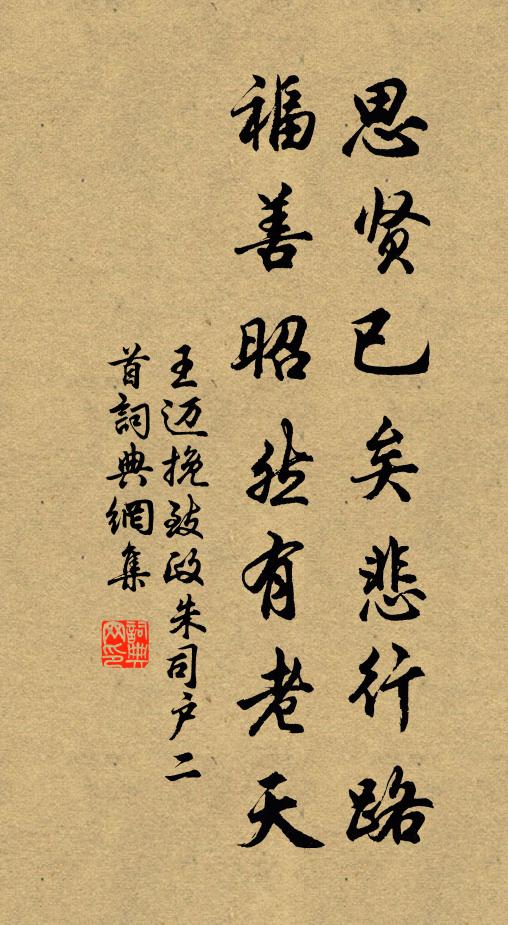 思贤已矣悲行路
福善昭然有老天
王迈挽致政朱司户二
首詞典網集
詞典
网印